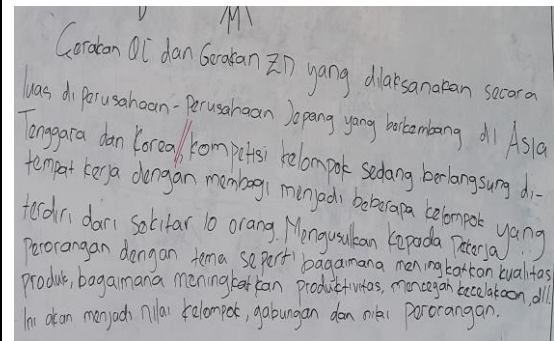 Gerakan QC dan Gerakan ZD yang dilaksanakan secara
luas di perusahaan-perusahaan Jepang yang berkembang di Asia
Tenggara dan Korea/kompetisi kelompok sedang berlangsung di-
tempat kerja dengan membagi menjadi beberapa kelompok yang
terdiri dari sekitar 10 orang. Mengusulkan kepada Pekerja
perorangan dengan tema seperti bagaimana meningkatkan kualitas
produk, bagaimana meningkatkan produktivitas, mencegah kecelakaan, dll.
Ini akan menjadi nilai kelompok, gabungan dan nilai perorangan.